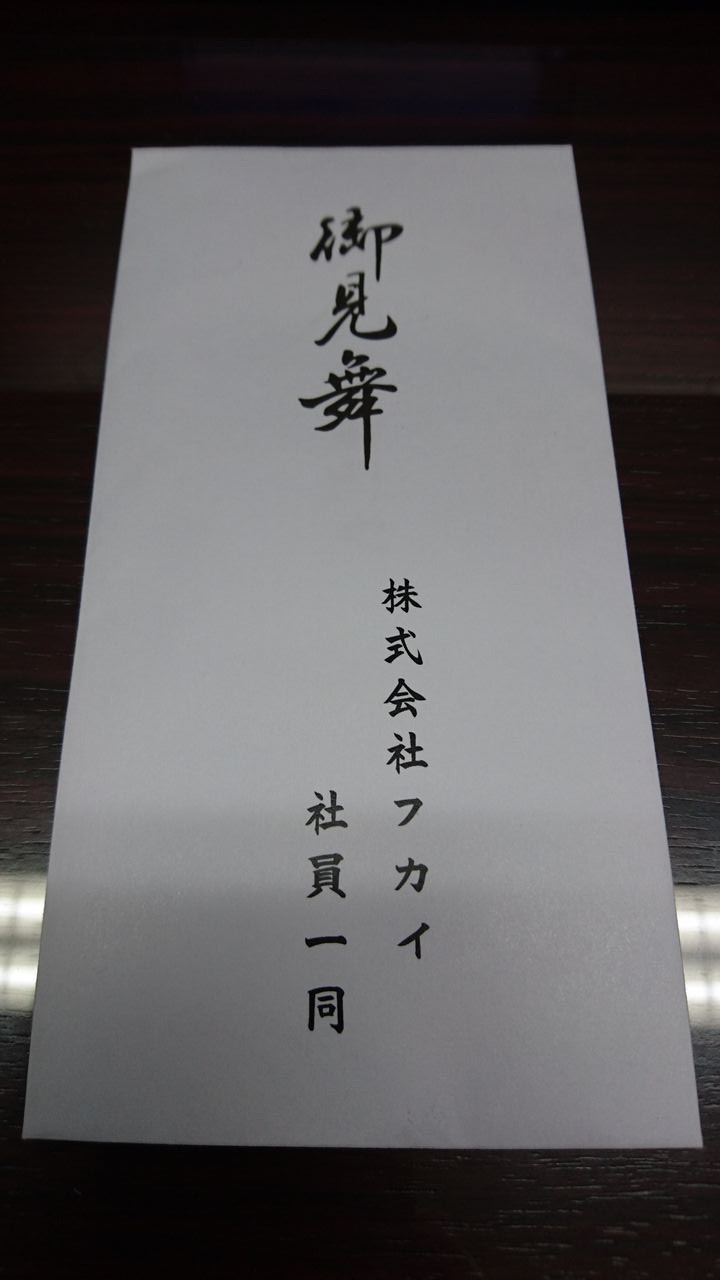 御見舞
株式会社フカイ
社員一同